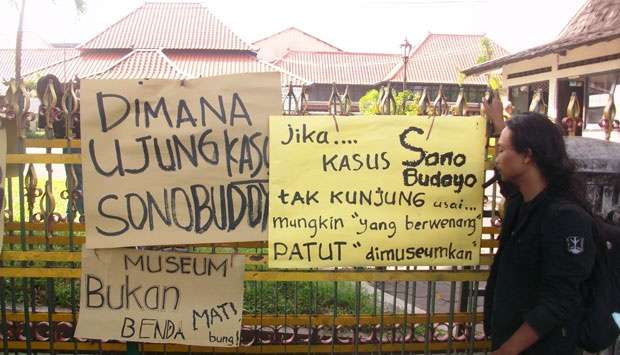 DIMANA
UJUNG KASU
SONOBUDOY
Jika....
KASUS Sono
Budoyo
tAK KUNJUNG usai...
mungkin "yang berwenang"
PATUT "dimuseumkan"
MUSEUM
Bukan
BENDA MATI
bung!